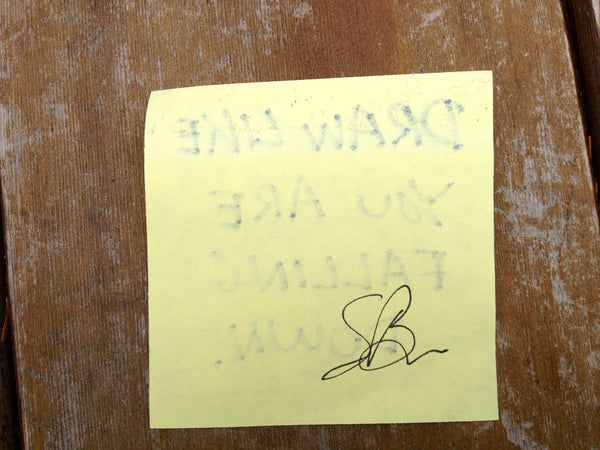 DRAW LIKE
YOU ARE
FALLING
DOWN.
SB